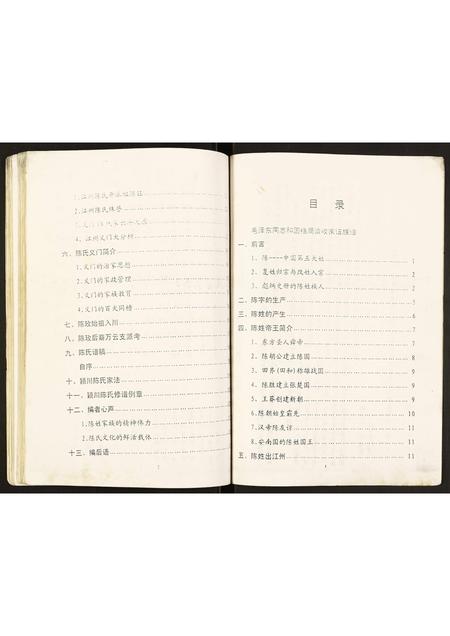 目 录
毛泽东同志和国档局谈收家谱族谱
一、前言
1、陈----中国第五大姓 1
2、复姓归宗与改姓入宗 2
3、彪炳史册的陈姓族人 2
二、陈字的生产 5
三、陈姓的产生 6
四、陈姓帝王简介 7
1、东方圣人舜帝 7
2、陈胡公建立陈国 8
3、田界(田和)称雄战国 9
4、陈胜建立张楚国 9
5、王莽创建新朝 9
6、陈朝始皇霸先 10
7、汉帝陈友谅 11
8、安南国的陈姓国王 11
五、陈姓出江州 11
1
2、江州陈氏
4、江州义门大分析
六、陈氏义门简介
1、义门的治家思想
2、义门的家政管理
3、义门的家族教育
4、义门的百犬同槽
七、陈玫始祖入川
八、陈玫后裔万云支派考
九、陈氏谱稿
自序
十、颍川陈氏家法
十一、颍川陈氏修谱例章
十二、编者心声
1、陈姓家族的精神伟力
2、陈氏文化的鲜活载体
十三、编后语